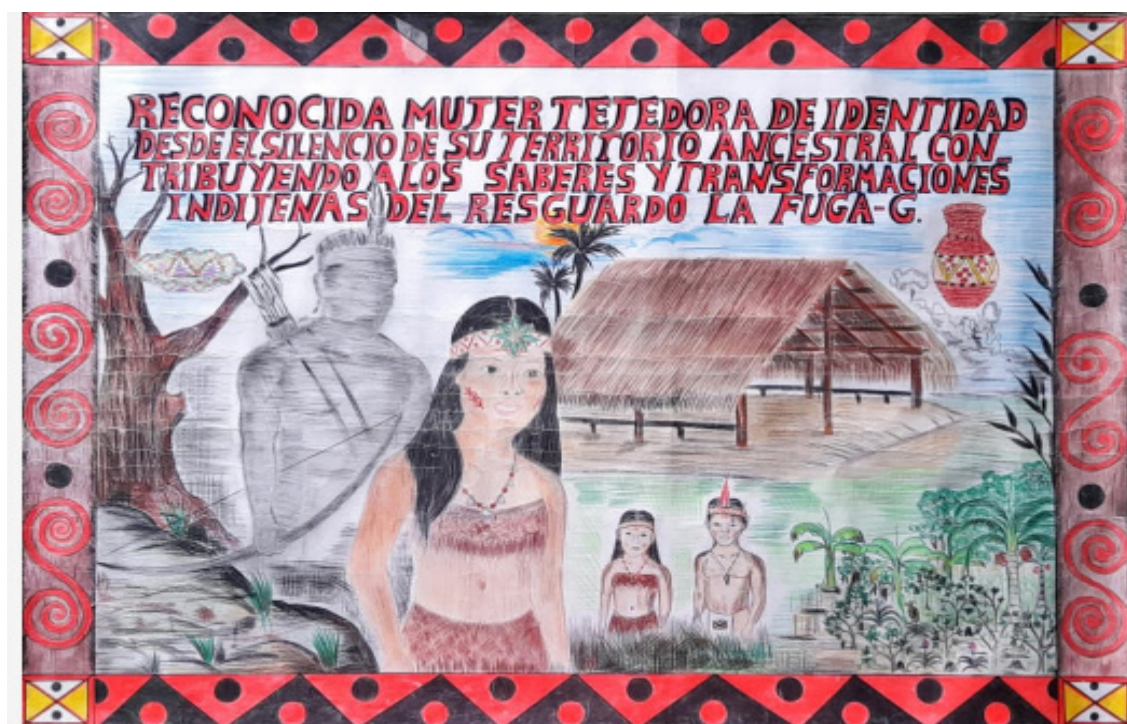 RECONOCIDA MUJER TEJEDORA DE IDENTIDAD
DESDE EL SILENCIO DE SU TERRITORIO ANCESTRAL CON_
TRIBUYENDO A LOS SABERES Y TRANSFORMACIONES
INDIJENAS DEL RESGUARDO LA FUGA-G.